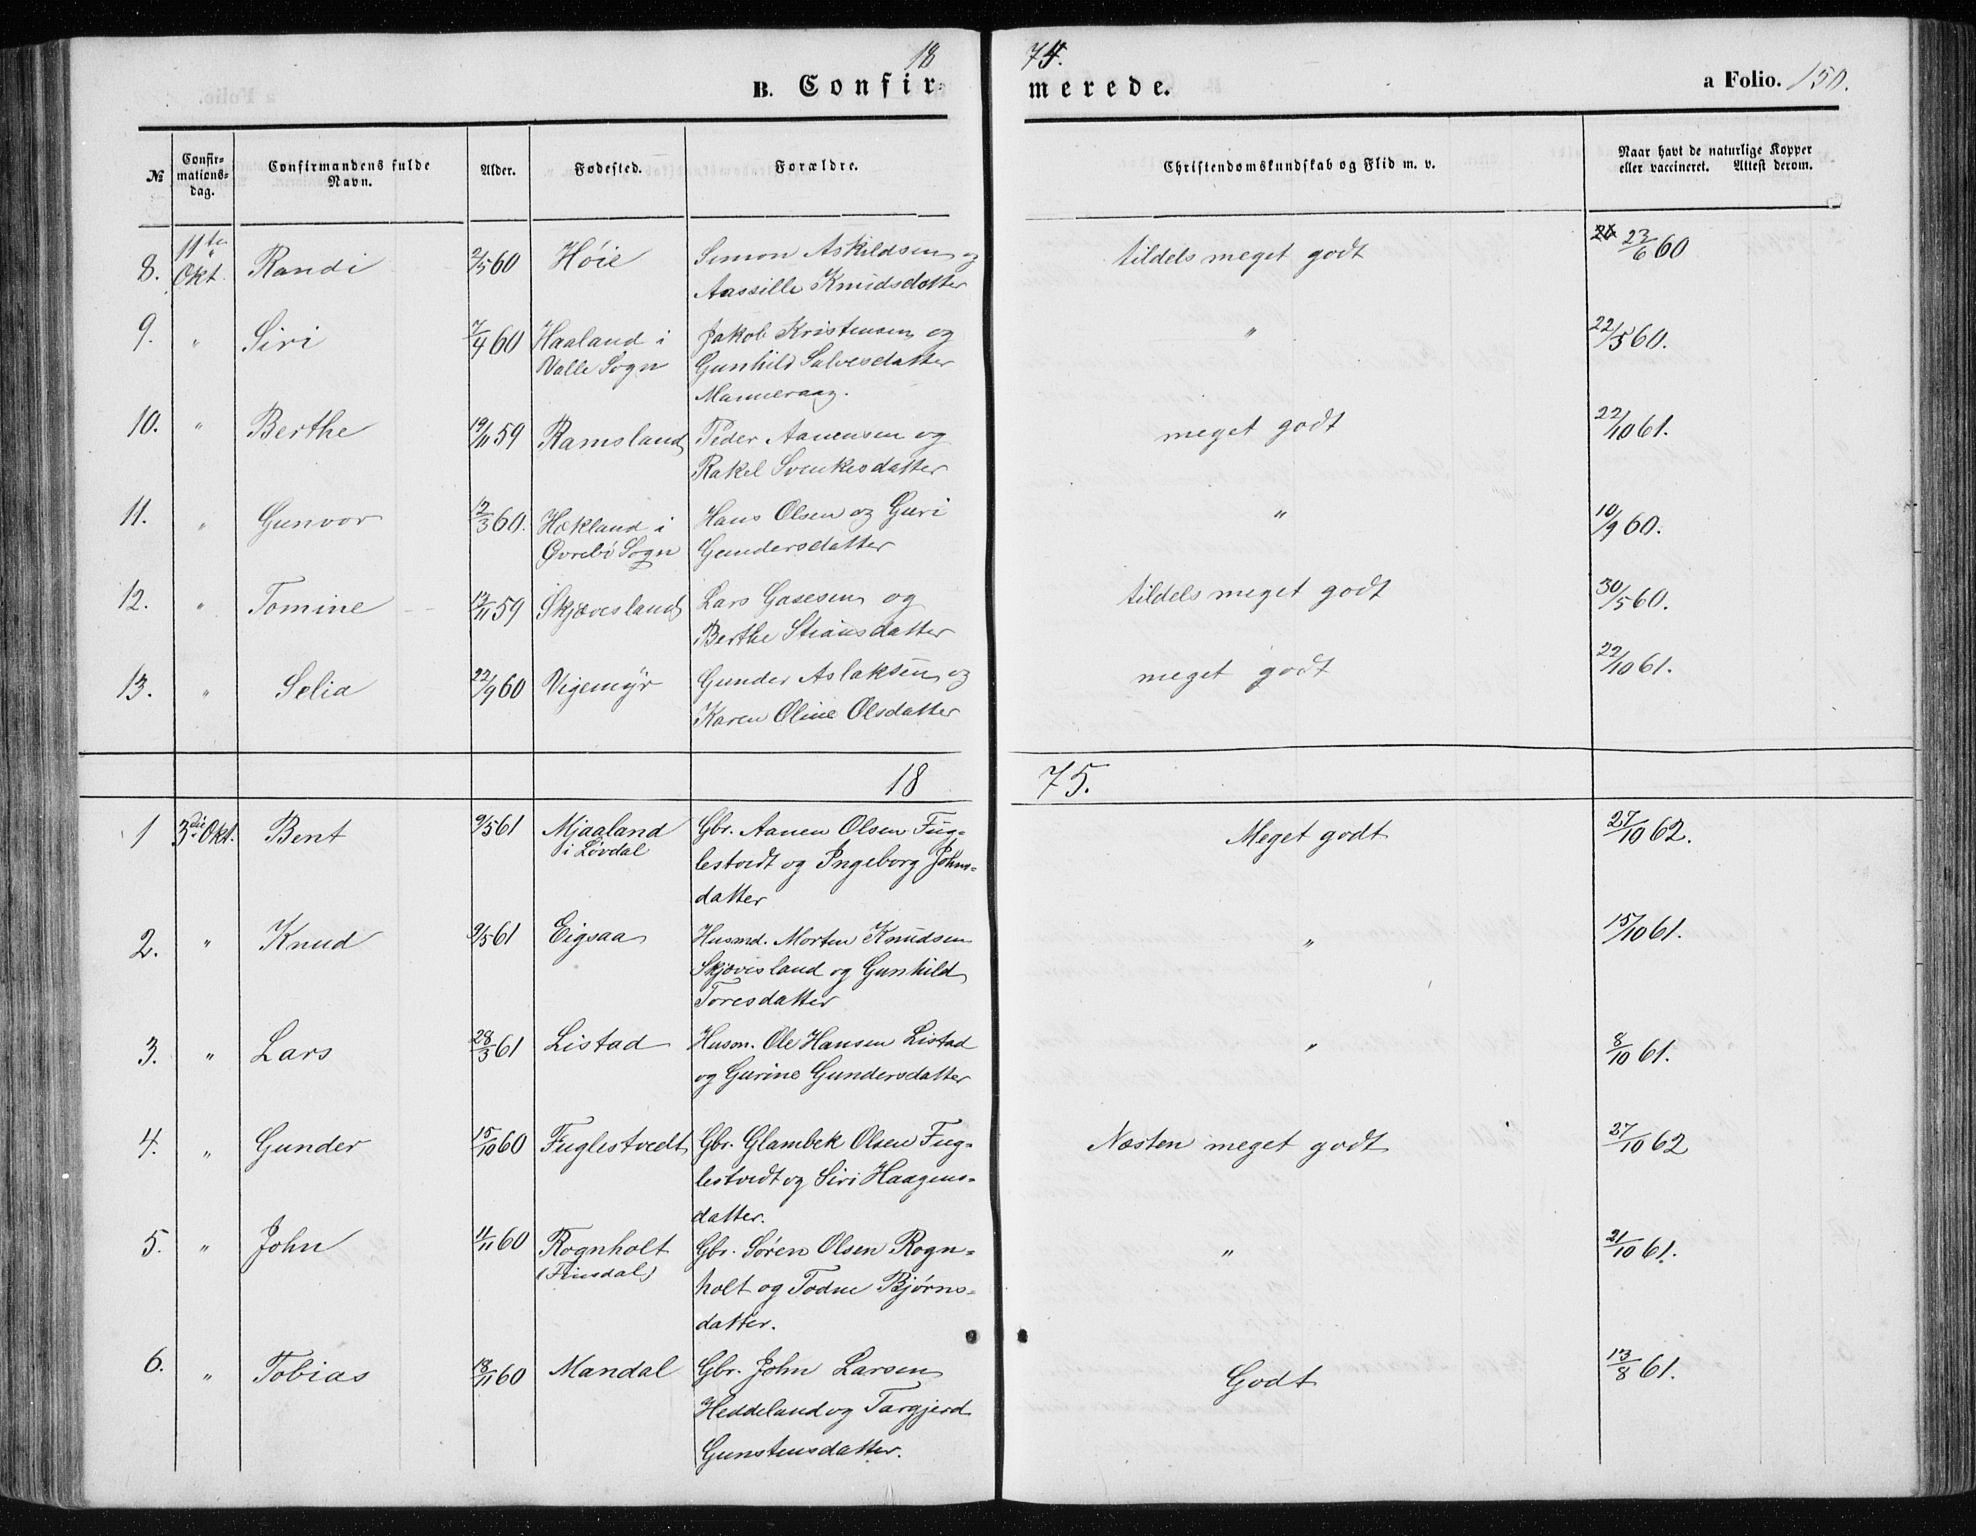 18 74.
B. Confir- merede. a Folio. 150.
№ Confir-mations-dag. Confirmandens fulde Navn. Alder. Fødested. Forældre. Christendomskundskab og Flid m. v. Naar havt de naturlige Kopper eller vaccineret. Attest derom.
8. 11te Okt. Randi 2/5 60 Høie Simon Askildsen og tildels meget godt 23/6 60
Aassille Knudsdatter
9. " Siri 7/4 60 Haaland i Jakob Kristensen og " 22/5 60.
Valle Sogn Gunhild Salvesdatter
Manneraag.
10. " Berthe 19/11 59 Ramsland Peder Aanensen og meget godt 22/10 61.
Rakel Svenkesdatter
11. " Gunvor 12/3 60. Hækland i Hans Olsen og Guri " 10/9 60.
Øvrebø Sogn Gundersdatter
12. " Tomine 13/11 59 Skjævesland Lars Gasesen og tildels meget godt 30/5 60.
Berthe Stiansdatter
13. " Selia 22/9 60 Vigemyr Gunder Aslaksen og meget godt 22/10 61.
Karen Oline Olsdatter
18 75.
1 3die Okt. Bent 9/5 61 Mjaaland Gbr. Aanen Olsen Fug- Meget godt 27/10 62.
i Løvdal lestvedt og Ingeborg Johns-
datter
2. " Knud 9/5 61 Eigsaa Husmd. Morten Knudsen " 15/10 61.
Skjævesland og Gunhild
Toresdatter
3. " Lars 28/3 61 Listad Husm. Ole Hansen Listad " 8/10 61.
og Gurine Gundersdatter
4. " Gunder 15/10 60 Fuglestvedt Gbr. Glambek Olsen Fug- Næsten meget godt 27/10 62
lestvedt og Siri Haagens-
datter.
5. " John 4/11 60 Rognholt Gbr. Søren Olsen Rogn- " 21/10 61.
(Finsdal) holt og Todne Bjørns-
datter.
6. " Tobias 18/11 60 Mandal Gbr. John Larsen Godt 13/8 61.
Heddeland og Targjerd
Gunstensdatter.